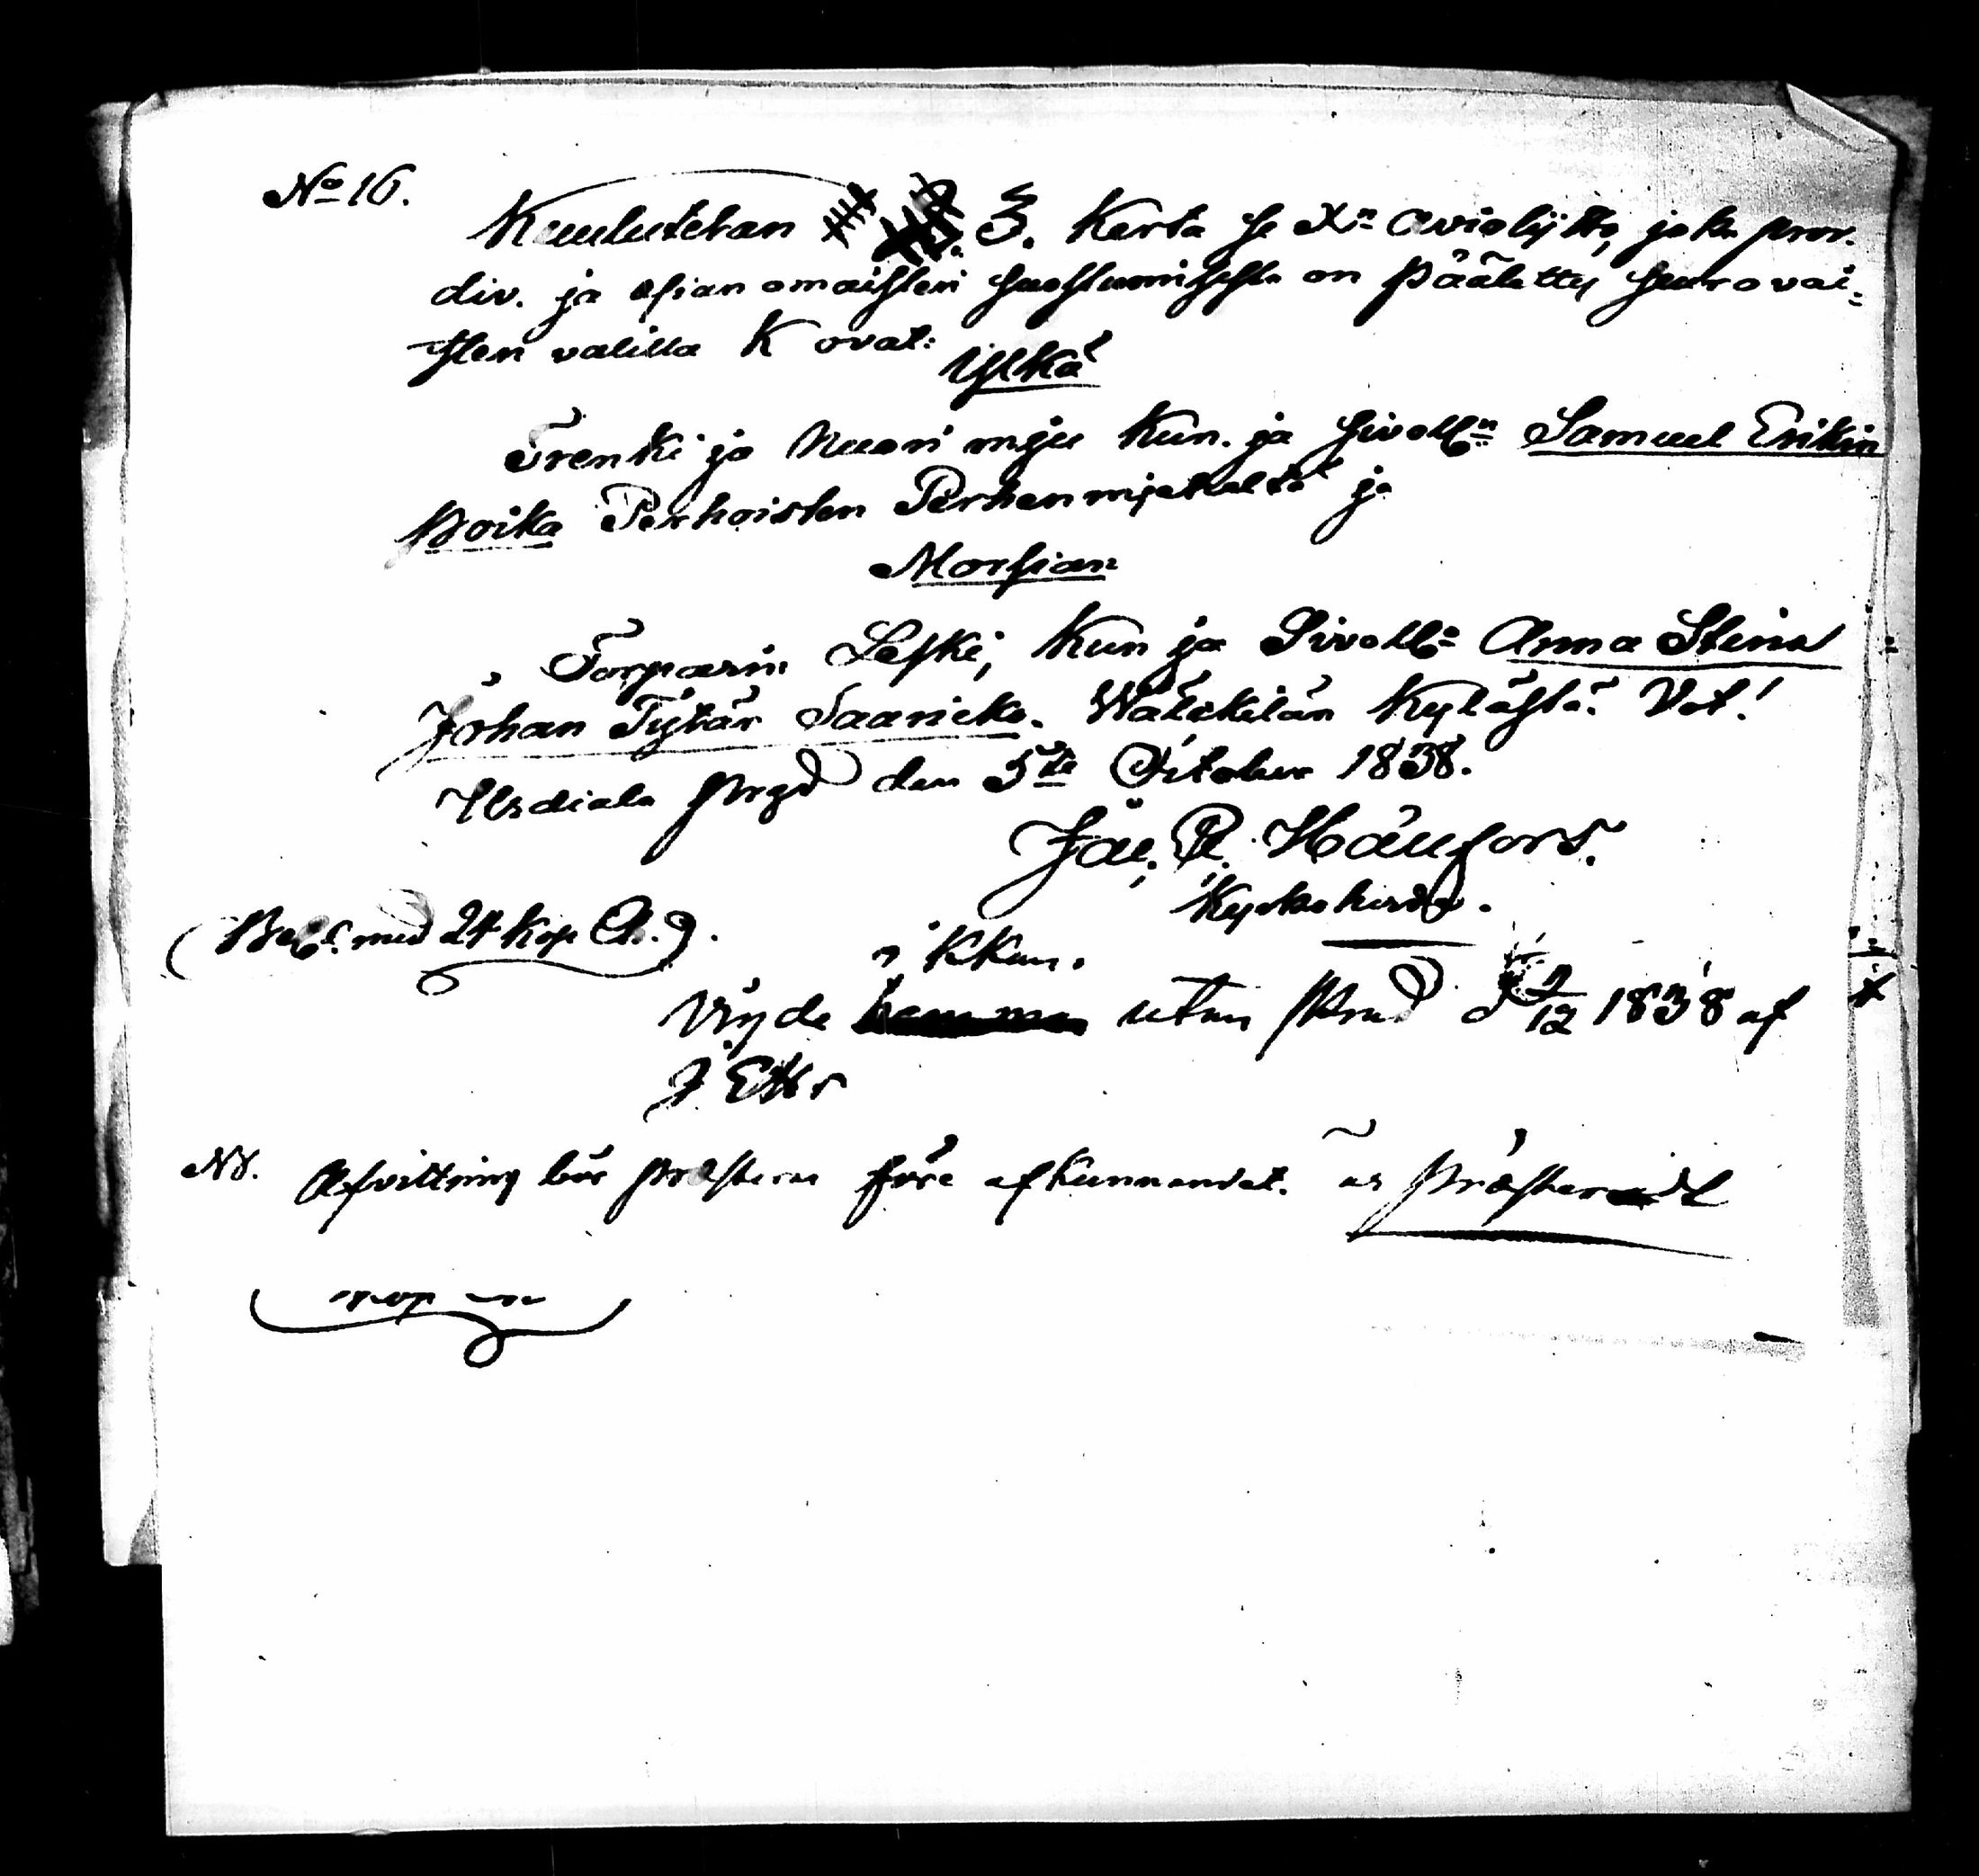 No 16.
Kuulutetan 3. Kerta se Xn Avioliitto, joka prov.
div. ja asianomaisten suostumisesta on päätetty seuravai=
sten valilla K ovat:
Ylkä
Trenki ja Nuori mjes Kun. ja sivoll:n Samuel Erikin
Poika Perhoisten Perhenmjeheltä ja
Morsian
Torparin Leski, Kun ja Sivoll:n Anna Stina
Johan Tytär Saaricko. Wäläkilän Kylästä. Vot!
Urdiala Prgd den 5te October 1838.
Jac. R. Häufors.
Kyrkoherde.
(Bet. med 24 Kop. .)
i KKan.
Vigde utan Brud d 2/12 1838 af
J. Ettr
NB. Afvittring bör præsteras före afkunnandet. är præsteradt